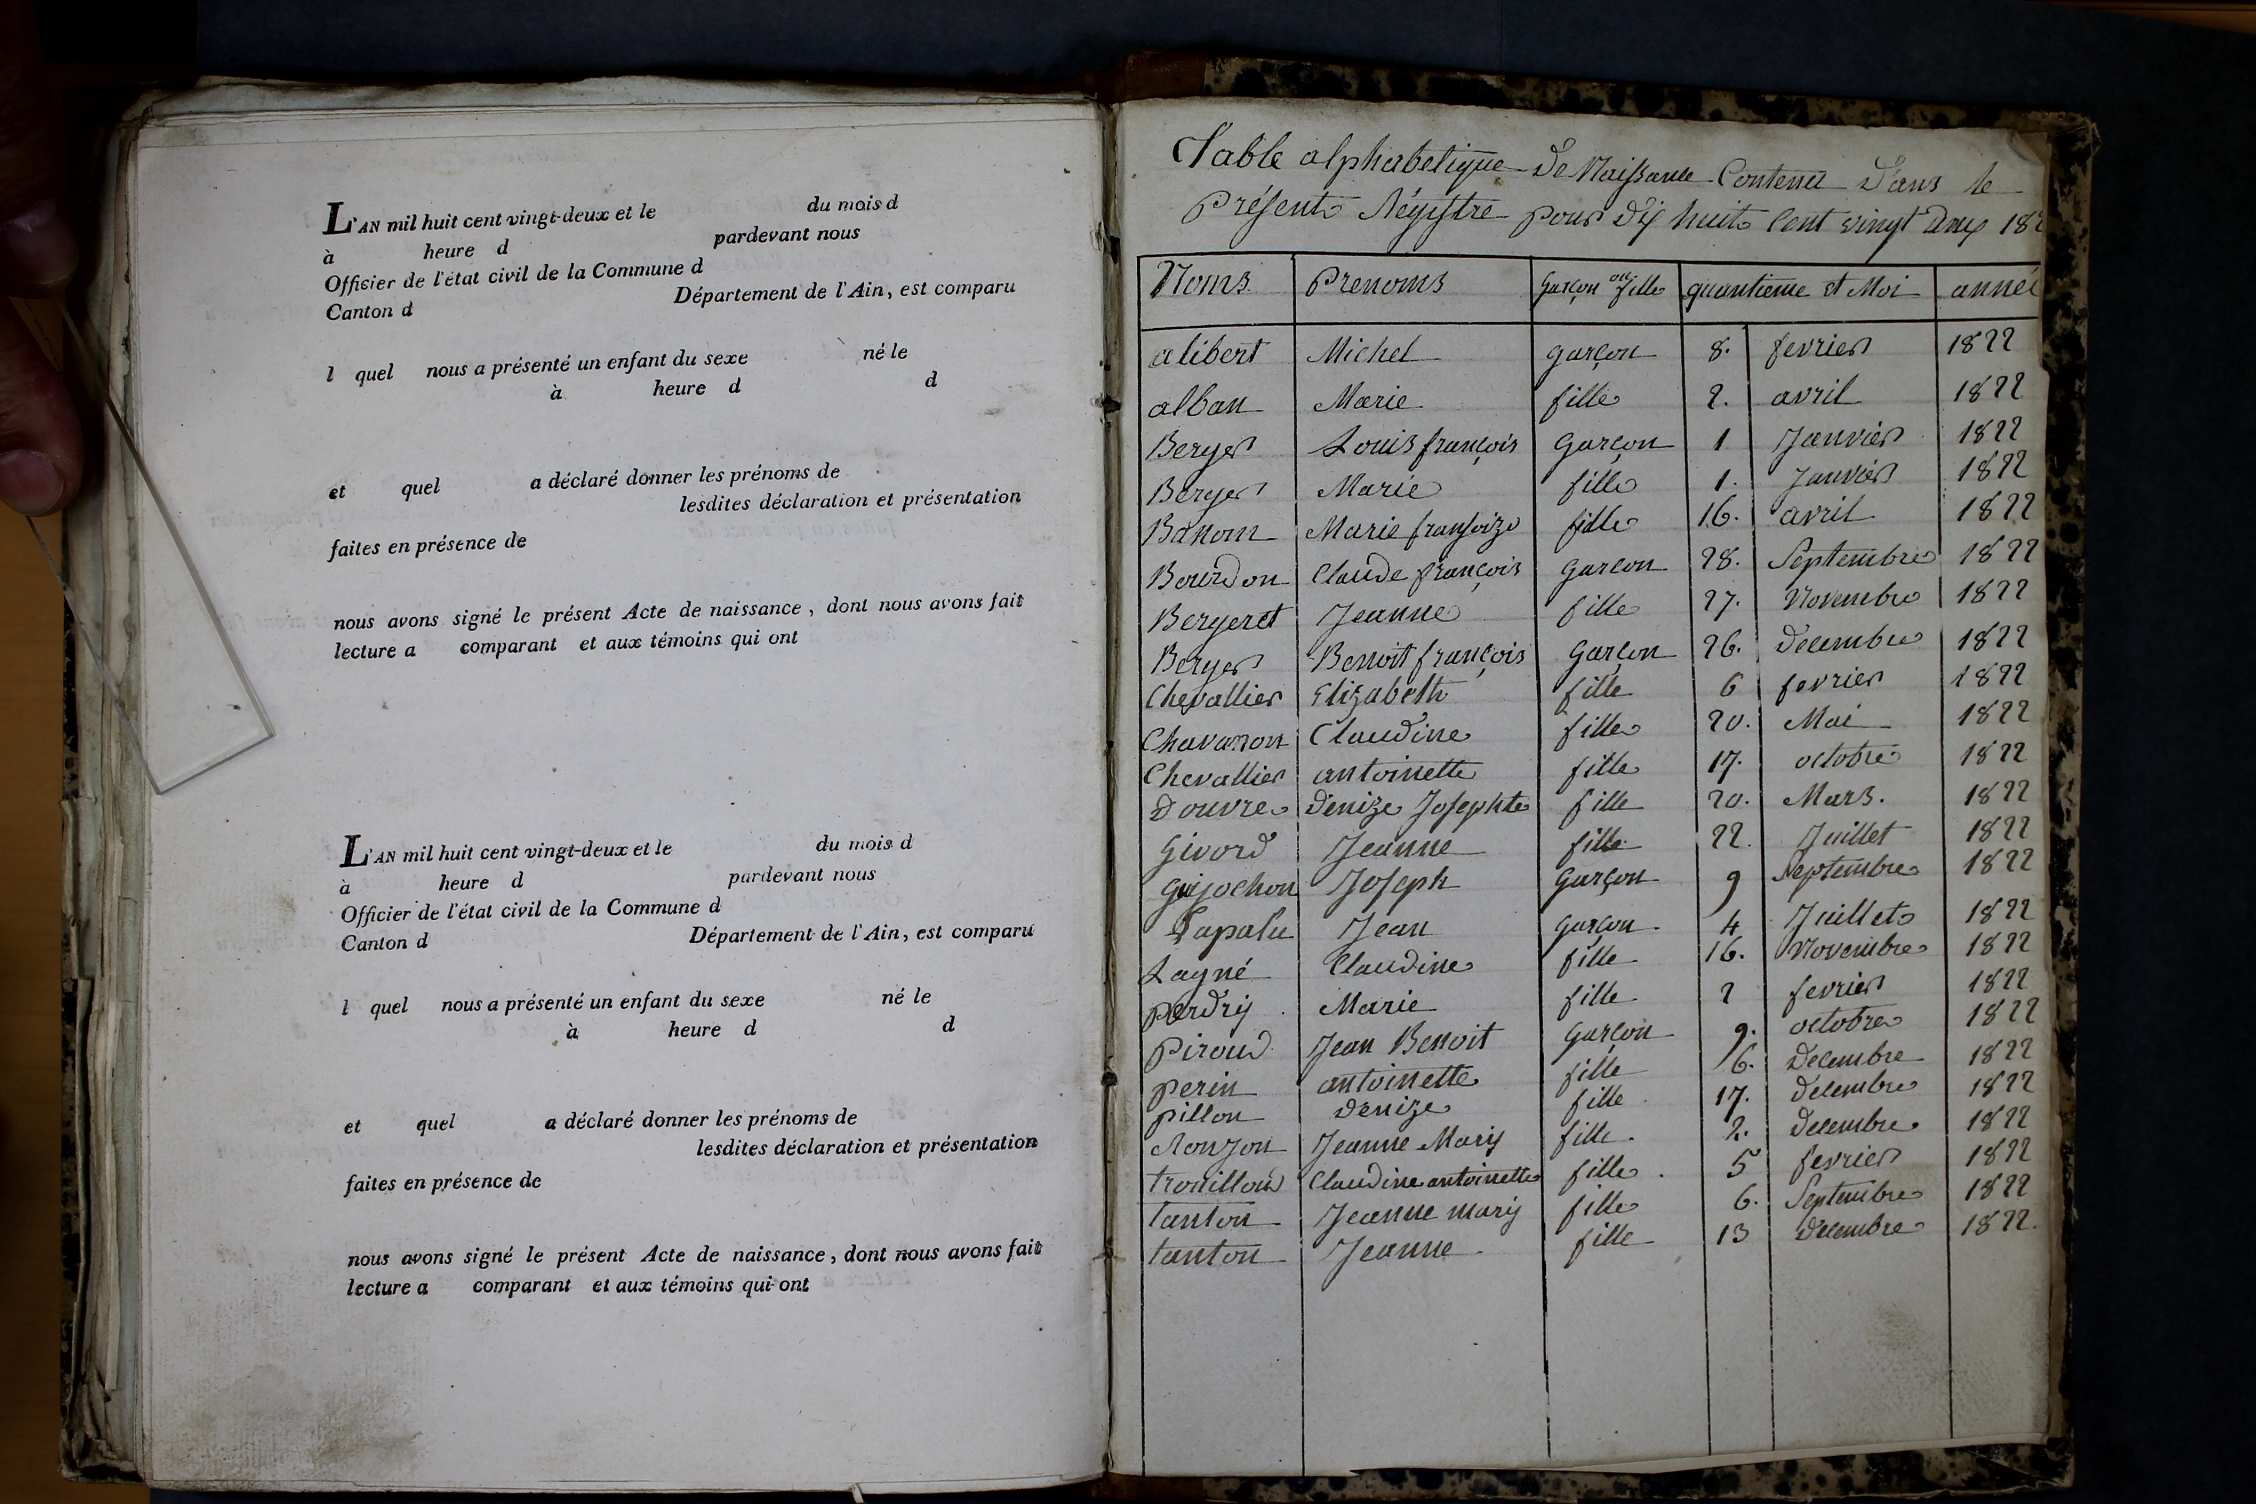 L'AN mil huit cent vingt-deux et le du mois d
à heure d pardevant nous
Officier de l'état civil de la Commune d
Canton d Département de l'Ain, est comparu
l quel nous a présenté un enfant du sexe né le
à heure d d
et quel a déclaré donner les prénoms de
lesdites déclaration et présentation
faites en présence de
nous avons signé le présent Acte de naissance, dont nous avons fait
lecture a comparant et aux témoins qui ont
L'AN mil huit cent vingt-deux et le du mois d
à heure d pardevant nous
Officier de l'état civil de la Commune d
Canton d Département de l'Ain, est comparu
l quel nous a présenté un enfant du sexe né le
à heure d d
et quel a déclaré donner les prénoms de
lesdites déclaration et présentation
faites en présence de
nous avons signé le présent Acte de naissance, dont nous avons fait
lecture a comparant et aux témoins qui ont
Table alphabetique De Naissance Contenu D'ans le
Présent Régistre pour Dix huit Cent vingt Deux 182
Noms Prenoms Garçon ou fille quantieme et Moi année
alibert Michel garçon 8. fevrier 1822
alban Marie fille 2. avril 1822
Berger Louis françois garçon 1 Janvier 1822
Berger Marie fille 1. Janvier 1822
Banom Marie françoize fille 16. avril 1822
Bourdon Claude françois garcon 28. Septembre 1822
Bergeret Jeanne fille 27. Novembre 1822
Berger Benoit françois Garçon 26. Decembre 1822
Chevallier Elizabeth fille 6 fevrier 1822
Chavanon Claudine fille 20. Mai 1822
Chevallier antoinette fille 17. octobre 1822
Douvre Denize Josephte fille 20. Mars. 1822
Givord Jeanne fille 22. Juillet 1822
Guijochon Joseph Garçon 9 Septembre 1822
Lapalu Jean garçon 4 Juillet 1822
Layné Claudine fille 16. Novembre 1822
perdrij Marie fille 2 fevrier 1822
piroud Jean Benoit garçon 9. octobre 1822
perin antoinette fille 6. Decembre 1822
pillon Denize fille 17. Decembre 1822
Ronjon Jeanne Marij fille. 2. Decembre 1822
trouilloud Claudine antoinette fille 5 fevrier 1822
tanton Jeanne marij fille 6. Septembre 1822
tanton Jeanne fille 13 Decembre 1822.